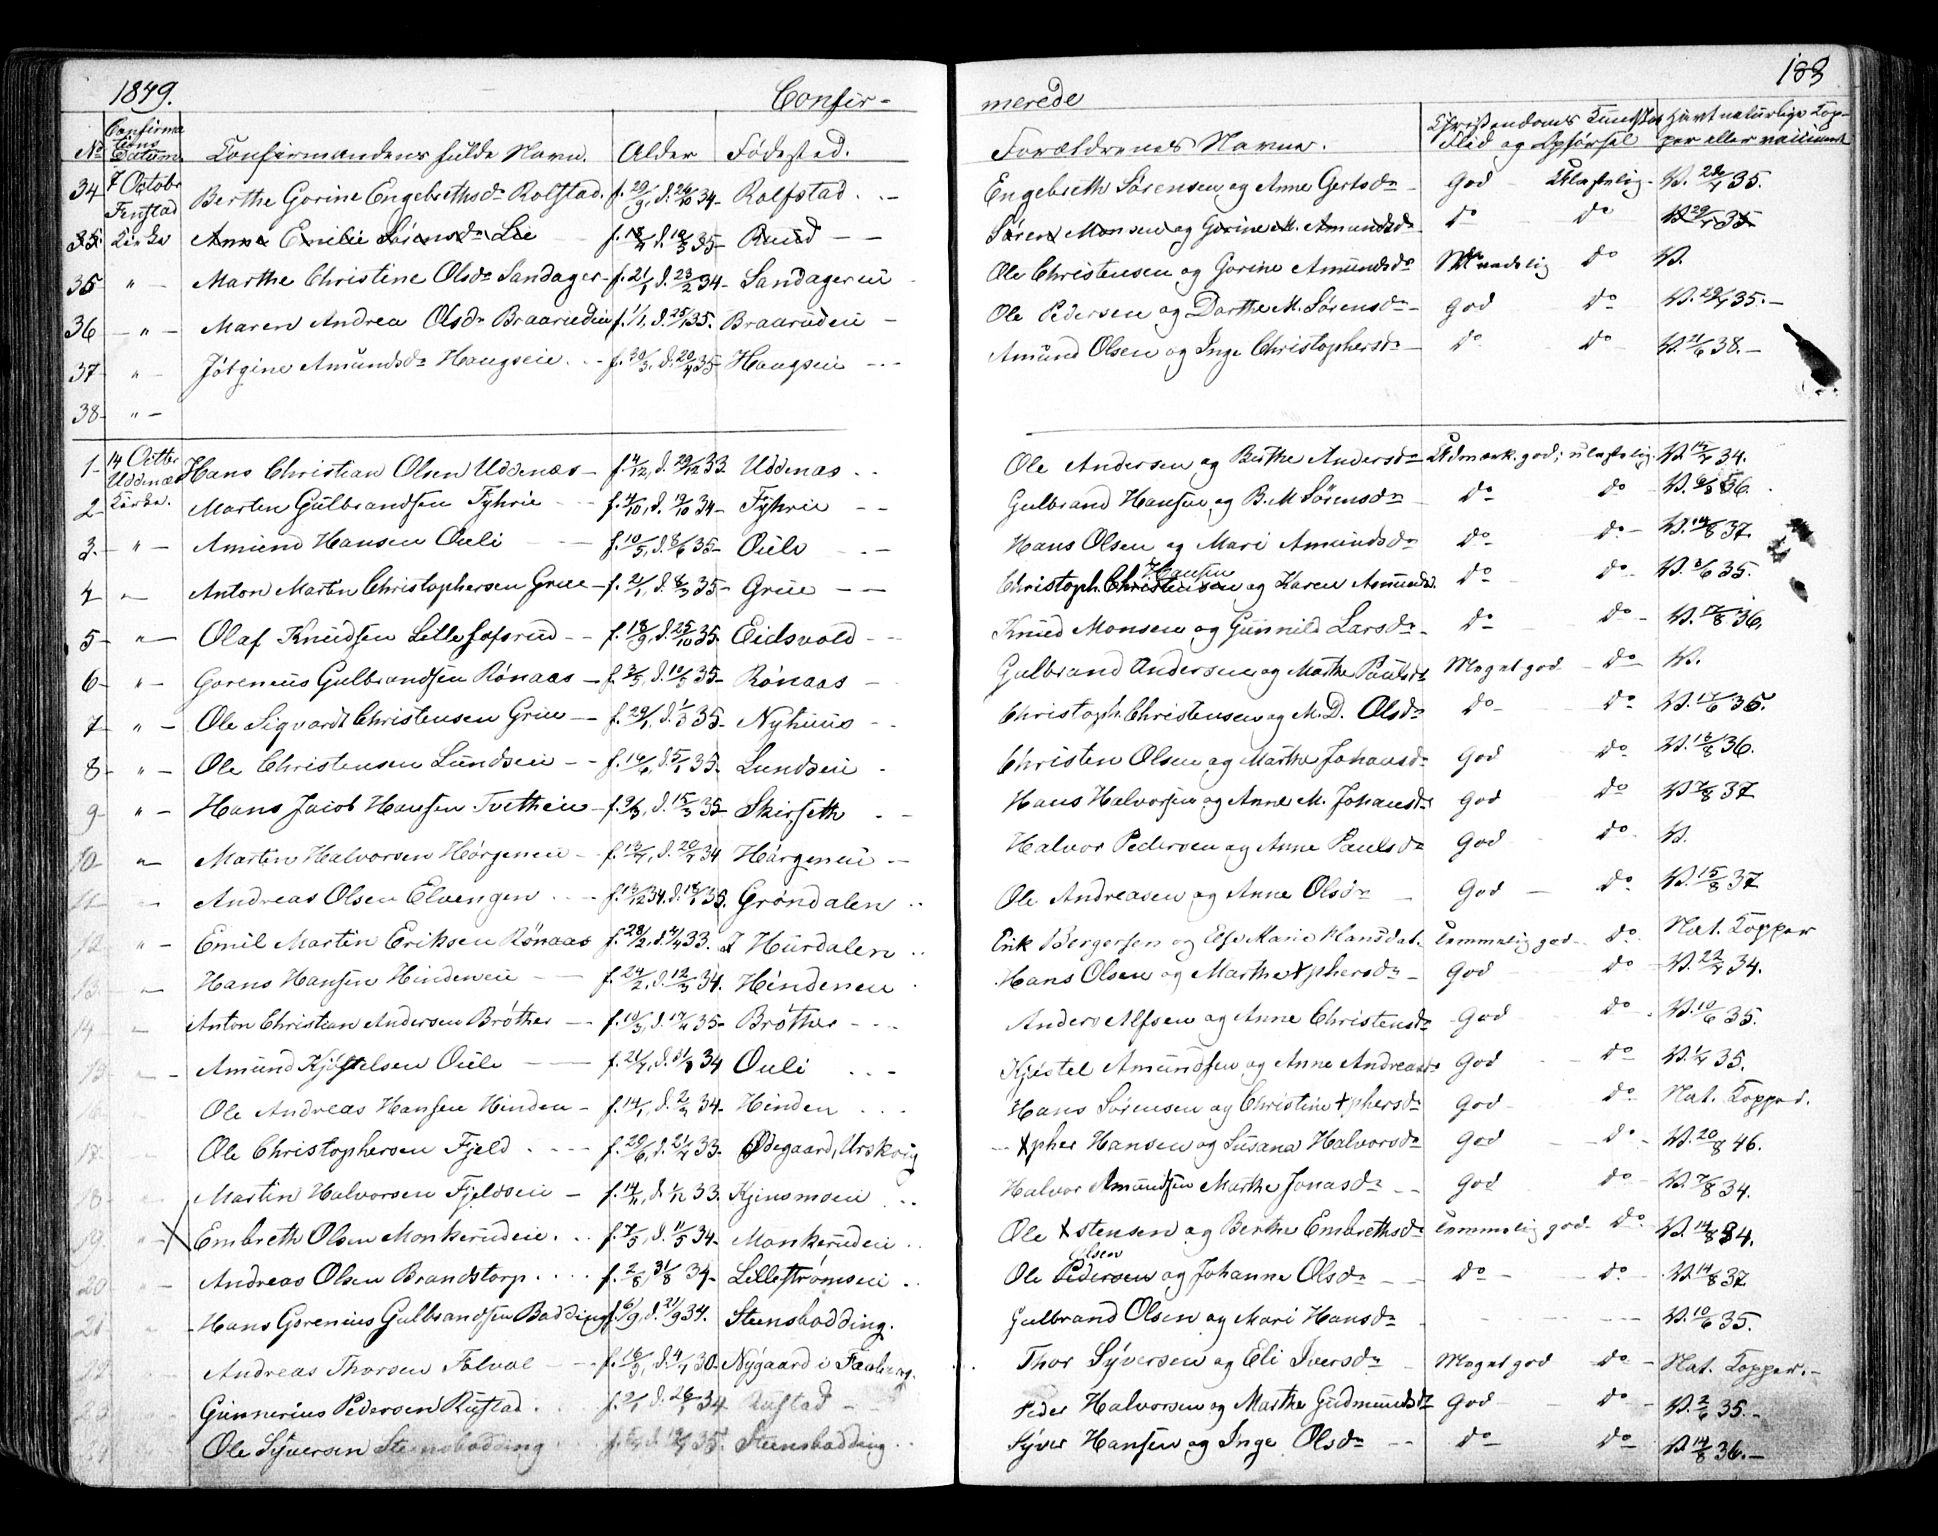 1849. Confir- merede 183
No Confirmations Datum Confirmandens fulde Navn. Alder Fødested. Forældrenes Navne. Christendoms Kundskab Flid og Opførsel havt naturlige Kopper eller vaccineret
34 7 Octobr Fenstad Berthe Gorine Engebrethsdr Rolfstad. f. 29/9, d. 26/10 34 Rolfstad Engebreth Sørensen og Anne Gertsdr God Ulastelig V. 35.
35 Kirke Anne Emilie Sørensdr Lie f. d. 35 Ruud Søren Monsen og Gorine M. Amundsdr do do V. 35
35 " Marthe Christine Olsdr Sandager f. 21/1 d. 23/2 34 Sandagereie Ole Christensen og Gorine Amundsdr do V.
36 " Maren Andrea Olsdr Braarudeie f. 1/1. d. 25/1 35. Braarudeie Ole Pedersen og Dorthe M. Sørensdr God do V. 29/4 35.
37 " Amundsdr Haugseie f. 30/3, d. 20/4 35 Haugseie Amund Olsen og Inge Christophersdr do do V. 21/6 38.
38 "
1 14 Octbr Uddenæs Hans Christian Olsen Uddenæs f. 4/12, d. 29/12 33 Uddenæs Ole Andersen og Berthe Andersdr Udmærk. god; ulastelig V. 34.
2 Kirke. Marten Gulbrandsen Fyhrie f. d. 19/10 34 Fyhrie Gulbrand Hansen og B. M Sørensdr do do V. 36.
3. " Amund Hansen Ouli f. 10/5, d. 8/6 35 Oule Hans Olsen og Mari Amundsdr do do V. 14/8 37.
4 " Anton Martin Christophersen Grue f. 2/1, d. 8/3 35 Grue Christoph. Christensen Hansen og Karen Amunds. do do V. 35.
5 " Olaf Knudsen Lille Hofsrud f. 18/9, d. 25/10 35. Eidsvold Knud Monsen og Gunnild Larsdr do do V. 17/8 36.
6 " Gorenius Gulbrandsen Rønaas f. 3/3, d. 35 Rønaas Gulbrand Andersen og Marthe Paulsdr Meget god do V.
7 " Ole Sigvardt Christensen Grue f. 29/1, d. 1/3 35 Nyhuus Christoph. Christensen og M. D. Olsdr do do V. 17/6 36.
8 " Ole Christensen Lundseie f. d. 35. Lundseie Christen Olsen og Marthe Johansdr God do V. 18/8 36.
9 " Hans Jacob Hansen Tvetheie f. 9/3, d. 15/3 35 Skirseth Hans Halvorsen og Anne M. Johansdr God do V. 37
10 " Martin Halvorsen Hørgeneie f. 13/4, d. 20/4 34 Hørgeneie Halvor Pedersen og Anne Paulsdr God do V.
11 Andreas Olsen Elvengen f. 13/12 34. d. 35. Grøndalen Ole Andreasen og Anne Olsdr God do V. 15/8 37
12 " Emil Martin Eriksen Rønaas f. 28/2, d. 4/4 33. I Hurdalen Erik Børgersen og Else Marie Hansdat. temmelig god do Nat. Kopper
13 " Hans Hansen Hindeneie f. 24/2, d. 12/3 34. Hindeneie Hans Olsen og Marthe Xphersdr God do V. 22/4 34.
14 " Anton Christian Andersen Brøther f. 10/3, d. 17/4 35 Brøther Anders Alfsen og Anne Christensdr God do V. 10/6 35.
15 " Amund Kjøstelsen Oule f. d. 34 Ouli Kjøstel Amundsen og Anne Andreasdr God do V. 35.
16 " Ole Andreas Hansen Hinden f. 14/1, d. 2/2 34. Hinden Hans Sørensen og Christine Xphersdr God do Nat. Kopper.
17 Ole Christophersen Fjeld f. 29/6, d. 21/7 33. Ødegaard, Urskoug Xpher Hansen og Susana Halvorsdr God do V. 20/8 46.
18 Martin Halvorsen Fjeldseie f. d. 33. Kjinsmoeie Halvor Amundsen Marthe Jonasdr God do V. 7/8 34.
19 " Embreth Olsen Monkerudeie. f. 7/5, d. 11/5 34 Monkerudeie Ole Xstensen og Berthe Embrethsdr temmelig god do V. 14/8 34.
20 " Andreas Olsen Brandstorp f. 2/8, 31/8 34 Lillestrømseie Ole Pedersen Olsen og Johanne Olsdr do do V. 14/8 37
21 Hans Gorenius Gulbrandsen Bodding f. 6/9, d. 21/9 34. Steensbodding. Gulbrand Olsen og Mari Hansdr V. 10/6 35.
22 Andreas Thorsen Folval f. 16/3, d. 4/4 30 Nygaard i Thor Syversen og Eli Iversdr Meget god do Nat. Kopper.
23 Gunnerius Pedersen Rustad. f. 9/1 d. 26/1 34 Rustad Peder Halvorsen og Marthe Gudmundsdr God do V. 2/6 35.
24 Ole Syversen Steensbodding f. d. 35. Steensbodding Syver Hansen og Inge Olsdr do do V. 14/8 36.